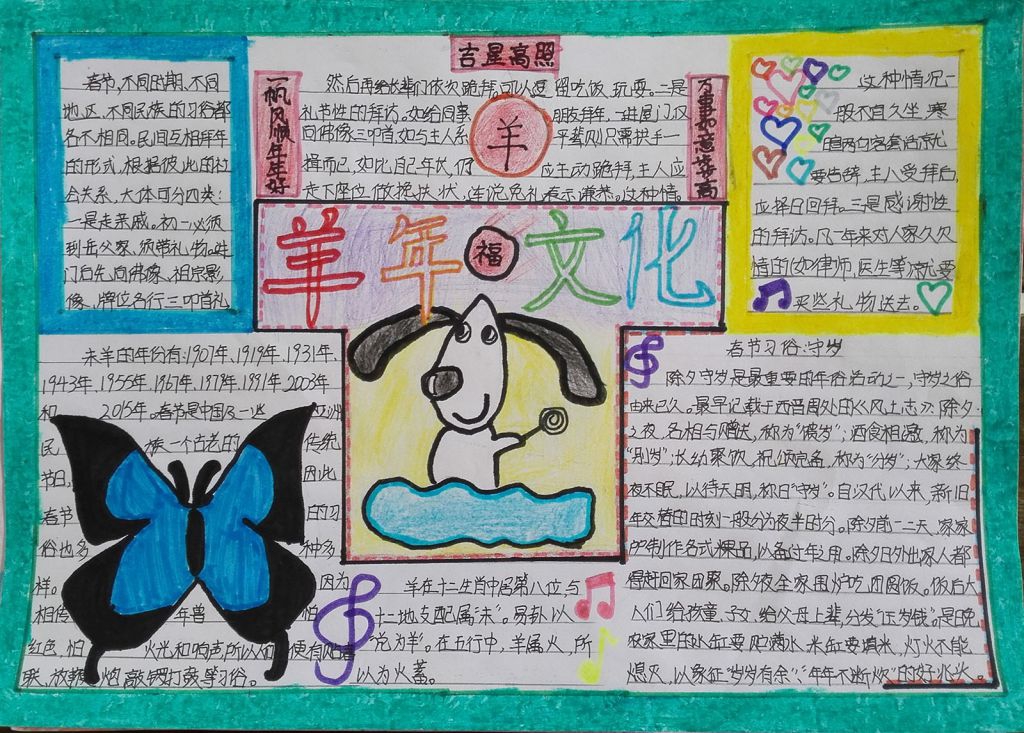 吉星高照
一帆风顺年年好
万事如意步步高
羊
羊年文化
福
春节,不同时期、不同
地区、不同民族的习俗都
各不相同。民间互相拜年
的形式,根据彼此的社
会关系,大体可分四类:
一是走亲戚。初一必须
到岳父家,须带礼物。进
门后先向佛像、祖宗影
像、牌位各行三叩首礼
然后再给长辈们依次跪拜。可以逗留吃饭、玩耍。二是
礼节性的拜访。如给同事朋友拜年,一进屋门,仅
回佛像三叩首,如与主人系平辈则只需拱手一
揖而已,如比自己年长,仍应主动跪拜,主人应
走下座位做搀扶状,连说免礼表示谦恭。这种情。
这种情况一
般不宜久坐,寒
要告辞,主人受拜后,
应择日回拜。三是感谢性
的拜访。凡一年来对人家欠
情的(如律师、医生等)就要
买些礼物送去。
未羊的年份有:1907年、1919年、1931年、
1943年、1955年、1967年、1979年、1991年、2003年
和2015年。春节是中国及一些
民族一个古老的传统
节日,因此
春节的习
俗也多种多
样。因为
相传年兽怕
红色、怕火光和响声,所以
联、放鞭炮、敲锣打鼓等习俗。
羊在十二生肖中居第八位,与
十二地支配属“未”。易卦以
“兑为羊”。在五行中,羊属火,所
以为火畜。
春节习俗:守岁
除夕守岁是最重要的年俗活动之一,守岁之俗
由来已久。最早记载于西晋周处的《风土志》:除夕
之夜,各相与赠送,称为“馈岁”;酒食相邀,称为
“别岁”;长幼聚饮,祝颂完备,称为“分岁”;大家终
夜不眠,以待天明,称曰“守岁”。自汉代以来,新旧
年交替的时刻一般分为夜半时分。除夕前一二天,家家
户户制作各式粿品,以备过年之用。除夕日外出家人都
得赶回家团聚。除夕夜全家围炉吃团圆饭。饭后大
人们给孩童、子女给父母上辈分发“压岁钱”。是晚,
农家里的水缸要贮满水,米缸要填米,灯火不能
熄灭,以象征“岁岁有余”、“年年不断炊”的好兆头。